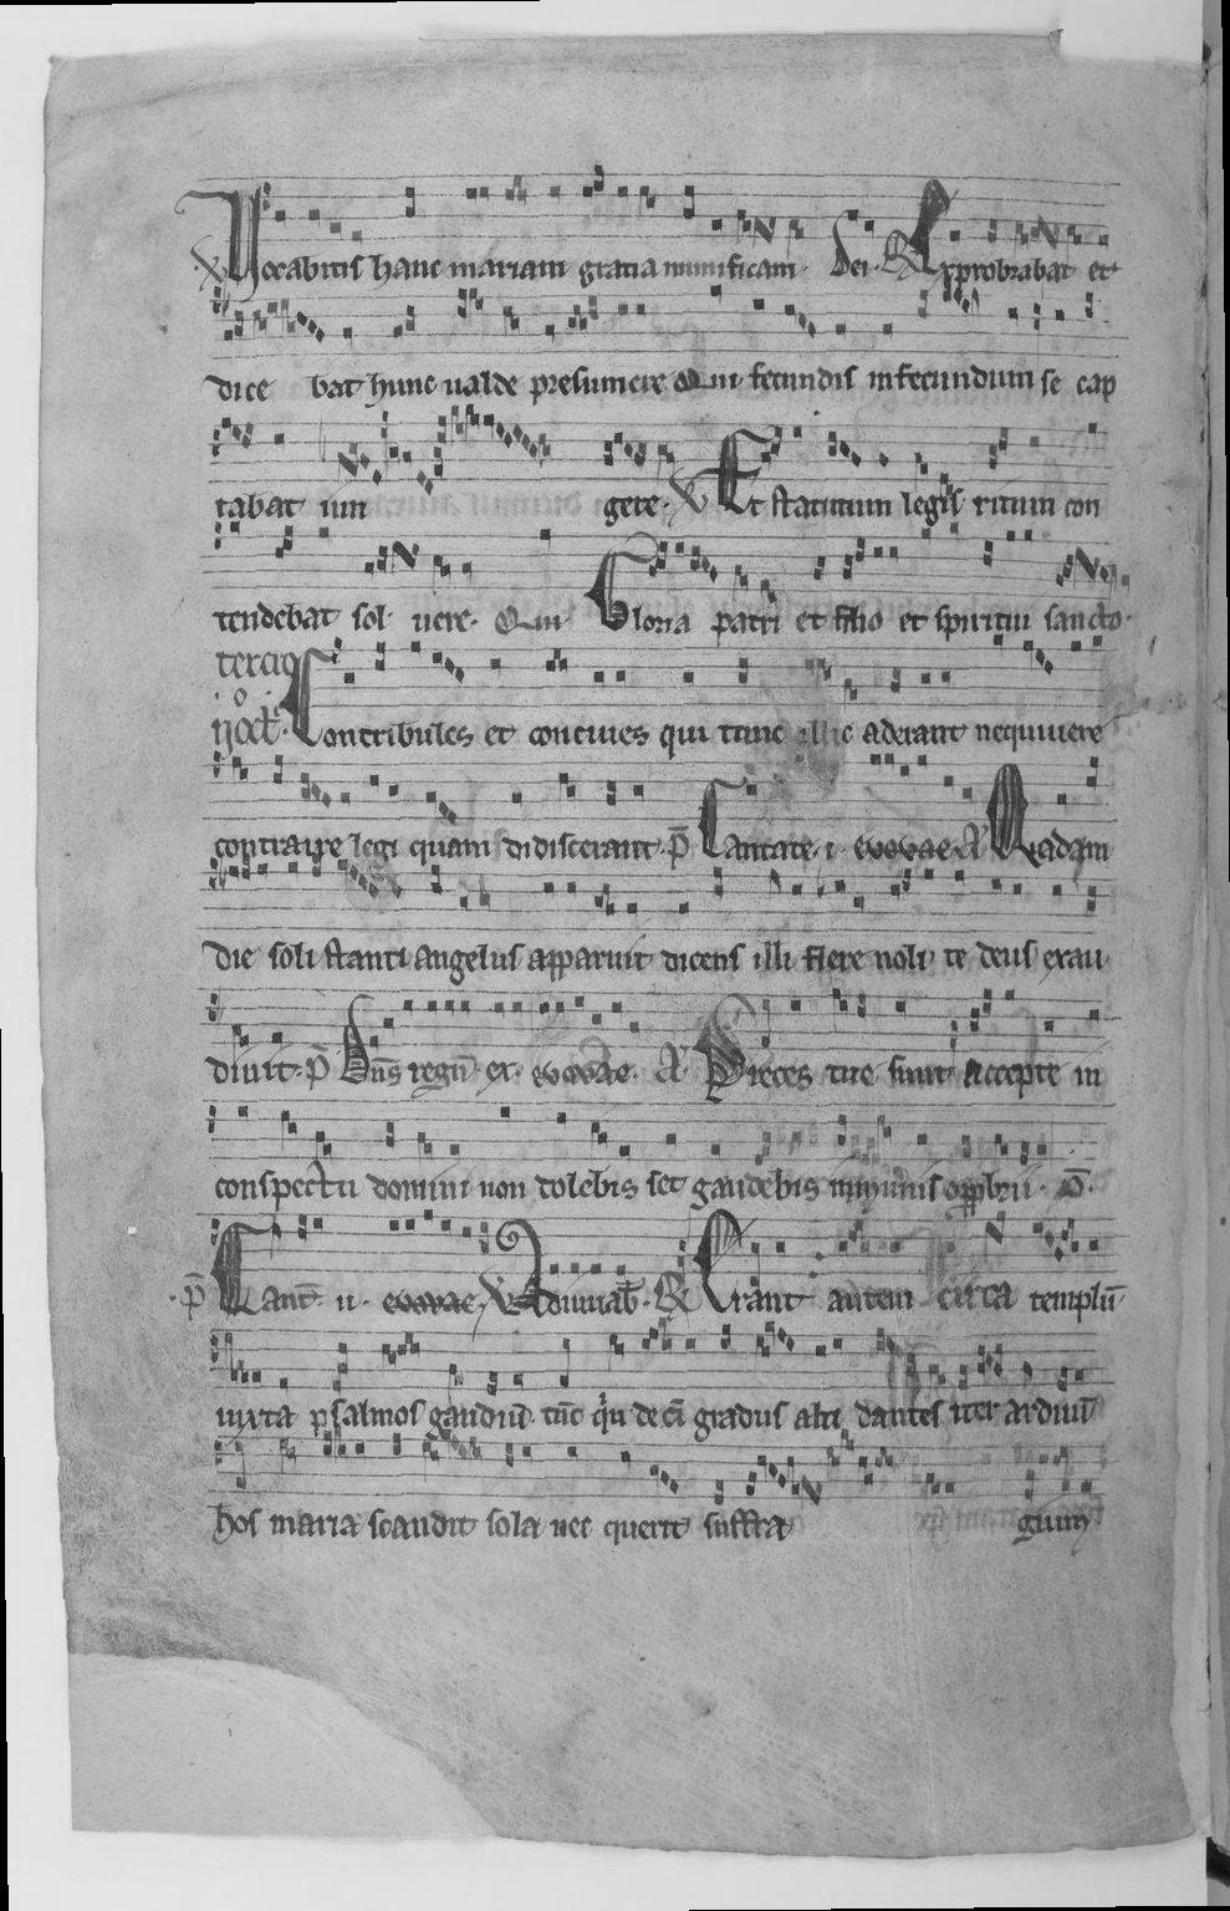 ℣ Vocabitis hanc mariam gratia munificam. Dei. ℟ Exprobrabat et
dice bat hunc ualde presumere Qui fecundis infecundum se cap
tabat iun gere. ℣ Et statutum legis ritum con
tendebat sol uere. Qui Gloria patri et filio et spiritui sancto.
tercio
noct. Contribules et conciues qui tunc illic aderant nequiuere
contraire legi quam didiscerant. p̄ Cantate .i. euouae. A Quadam
die soli stanti angelus apparuit dicens illi flere noli te deus exau
diuit. p̄ Dn̄s regn̄. ex. euouae. A Preces tue sunt accepte in
conspectu domini non dolebis set gaudebis opprbrii. p̄.
p̄ Cant̄. ii. euouae. ℣ Adiuuab̄. ℟ Erant autem circa templū
iuxta psalmos gaudiū tūc gradus alti dantes iter arduū
hos maria scandit sola nec querit suffra gium